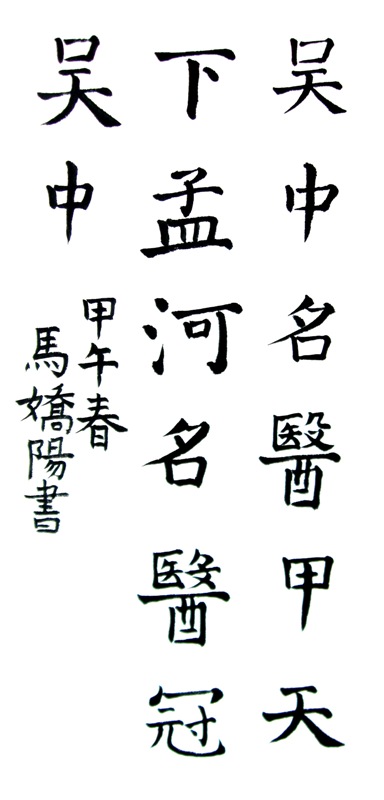 吴中名醫甲天
下孟河名醫冠
吴中
甲午春
馬嬌陽書